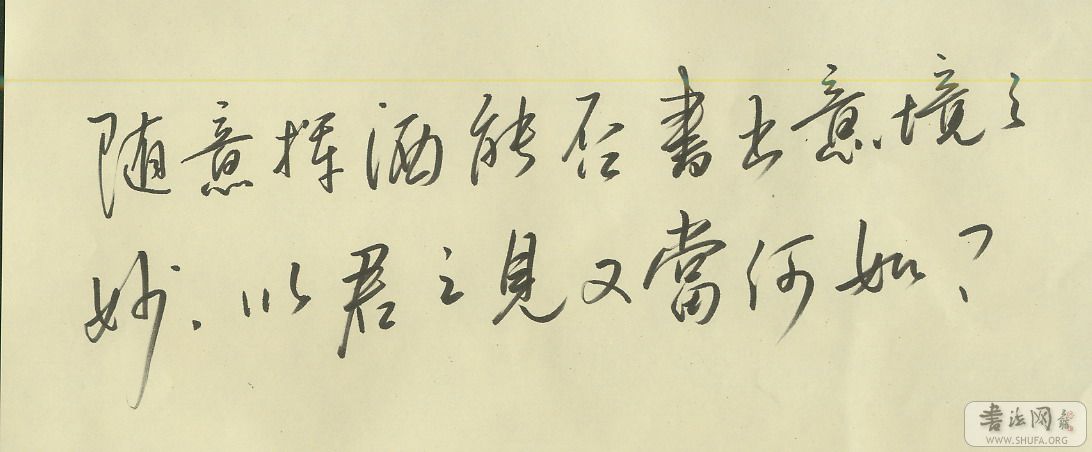 随意挥洒能否書出意境之
妙.以君之見又當何如?
書法网
WWW.SHUFA.ORG